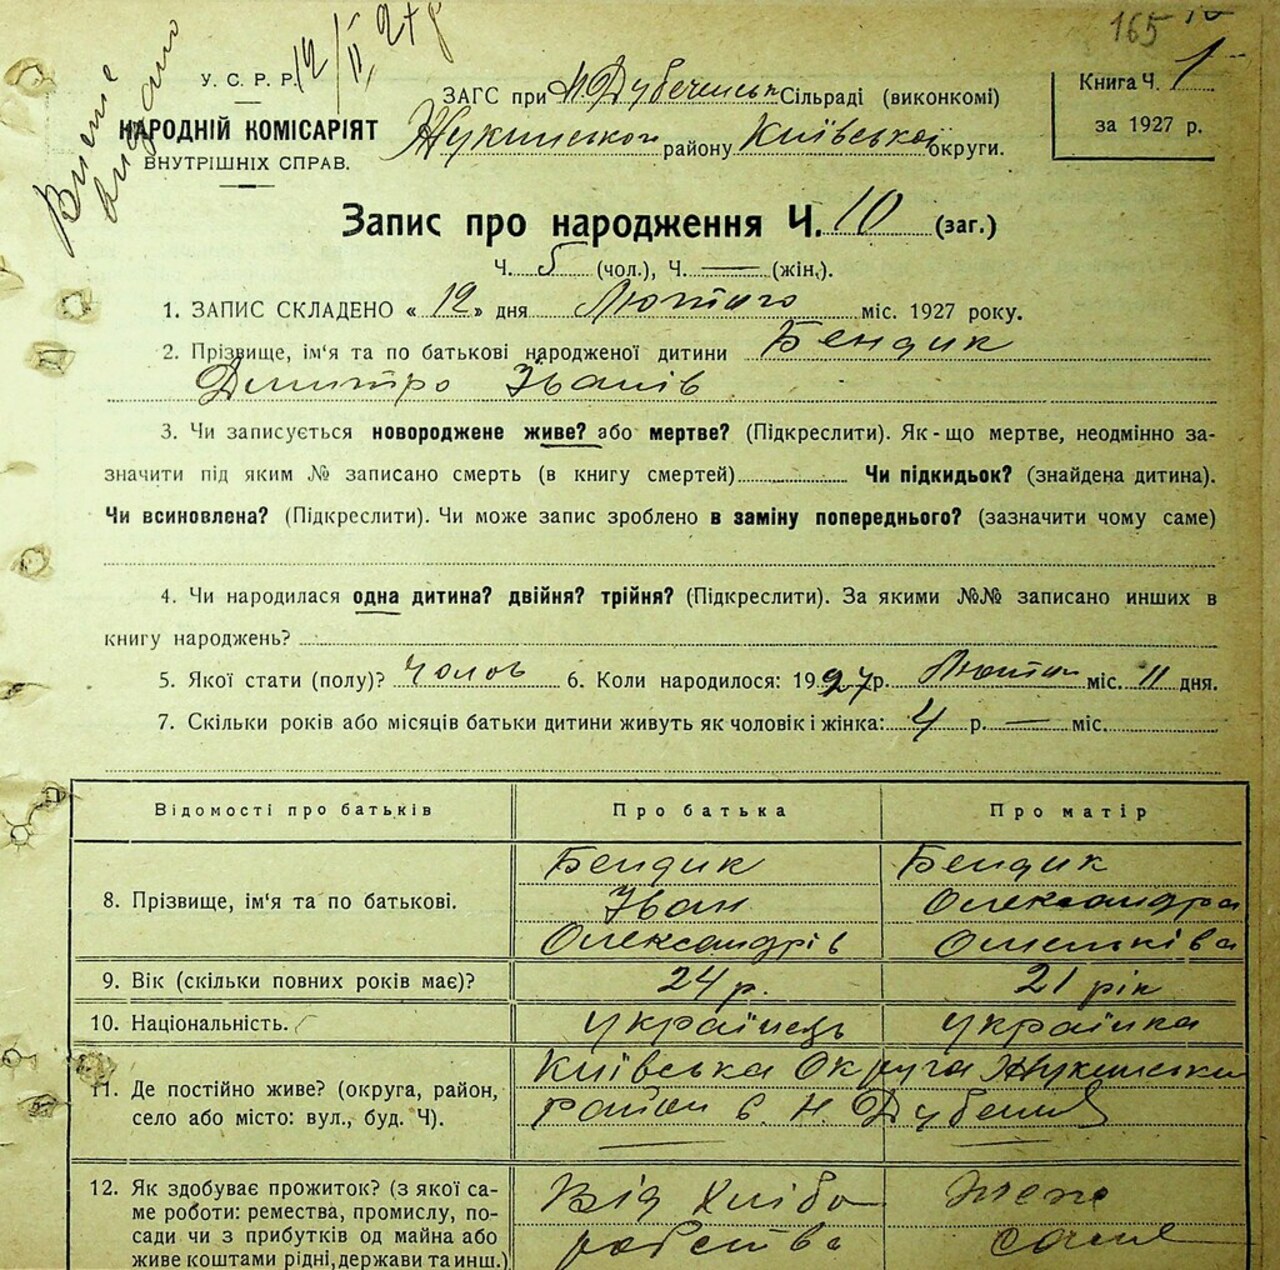 165
Витяг видано 12/II, 27 р
У. С. Р. Р.
НАРОДНІЙ КОМІСАРІЯТ
ВНУТРІШНІХ СПРАВ.
ЗАГС при Н. Дубечнськ Сільраді (виконкомі)
Жукинськом району Київської округи.
Книга Ч. 1
за 1927 р.
Запис про народження Ч. 10 (заг.)
Ч. 5 (чол.), Ч. — (жін.).
1. ЗАПИС СКЛАДЕНО « 12 » дня Лютого міс. 1927 року.
2. Прізвище, ім'я та по батькові народженої дитини Бендик
Дмитро Іванів
3. Чи записується новороджене живе? або мертве? (Підкреслити). Як-що мертве, неодмінно за-
значити під яким № записано смерть (в книгу смертей) Чи підкидьок? (знайдена дитина).
Чи всиновлена? (Підкреслити). Чи може запис зроблено в заміну попереднього? (зазначити чому саме)
4. Чи народилася одна дитина? двійня? трійня? (Підкреслити). За якими №№ записано инших в
книгу народжень?
5. Якої стати (полу)? чолов 6. Коли народилося: 1927 р. Лютом міс. 11 дня.
7. Скільки років або місяців батьки дитини живуть як чоловік і жінка: 4 р. — міс.
Відомості про батьків Про батька Про матір
8. Прізвище, ім'я та по батькові.
Бендик
Іван
Олександрів
Бендик
Олександра
Омельківа
9. Вік (скільки повних років має)? 24 р. 21 рік
10. Національність. українець українка
11. Де постійно живе? (округа, район,
село або місто: вул., буд. Ч).
Київська Округа Жукинськи
район с. Н. Дубечня
12. Як здобуває прожиток? (з якої са-
ме роботи: ремества, промислу, по-
сади чи з прибутків од майна або
живе коштами рідні, держави та инш.)
Від хлібо
робства
теж
саме